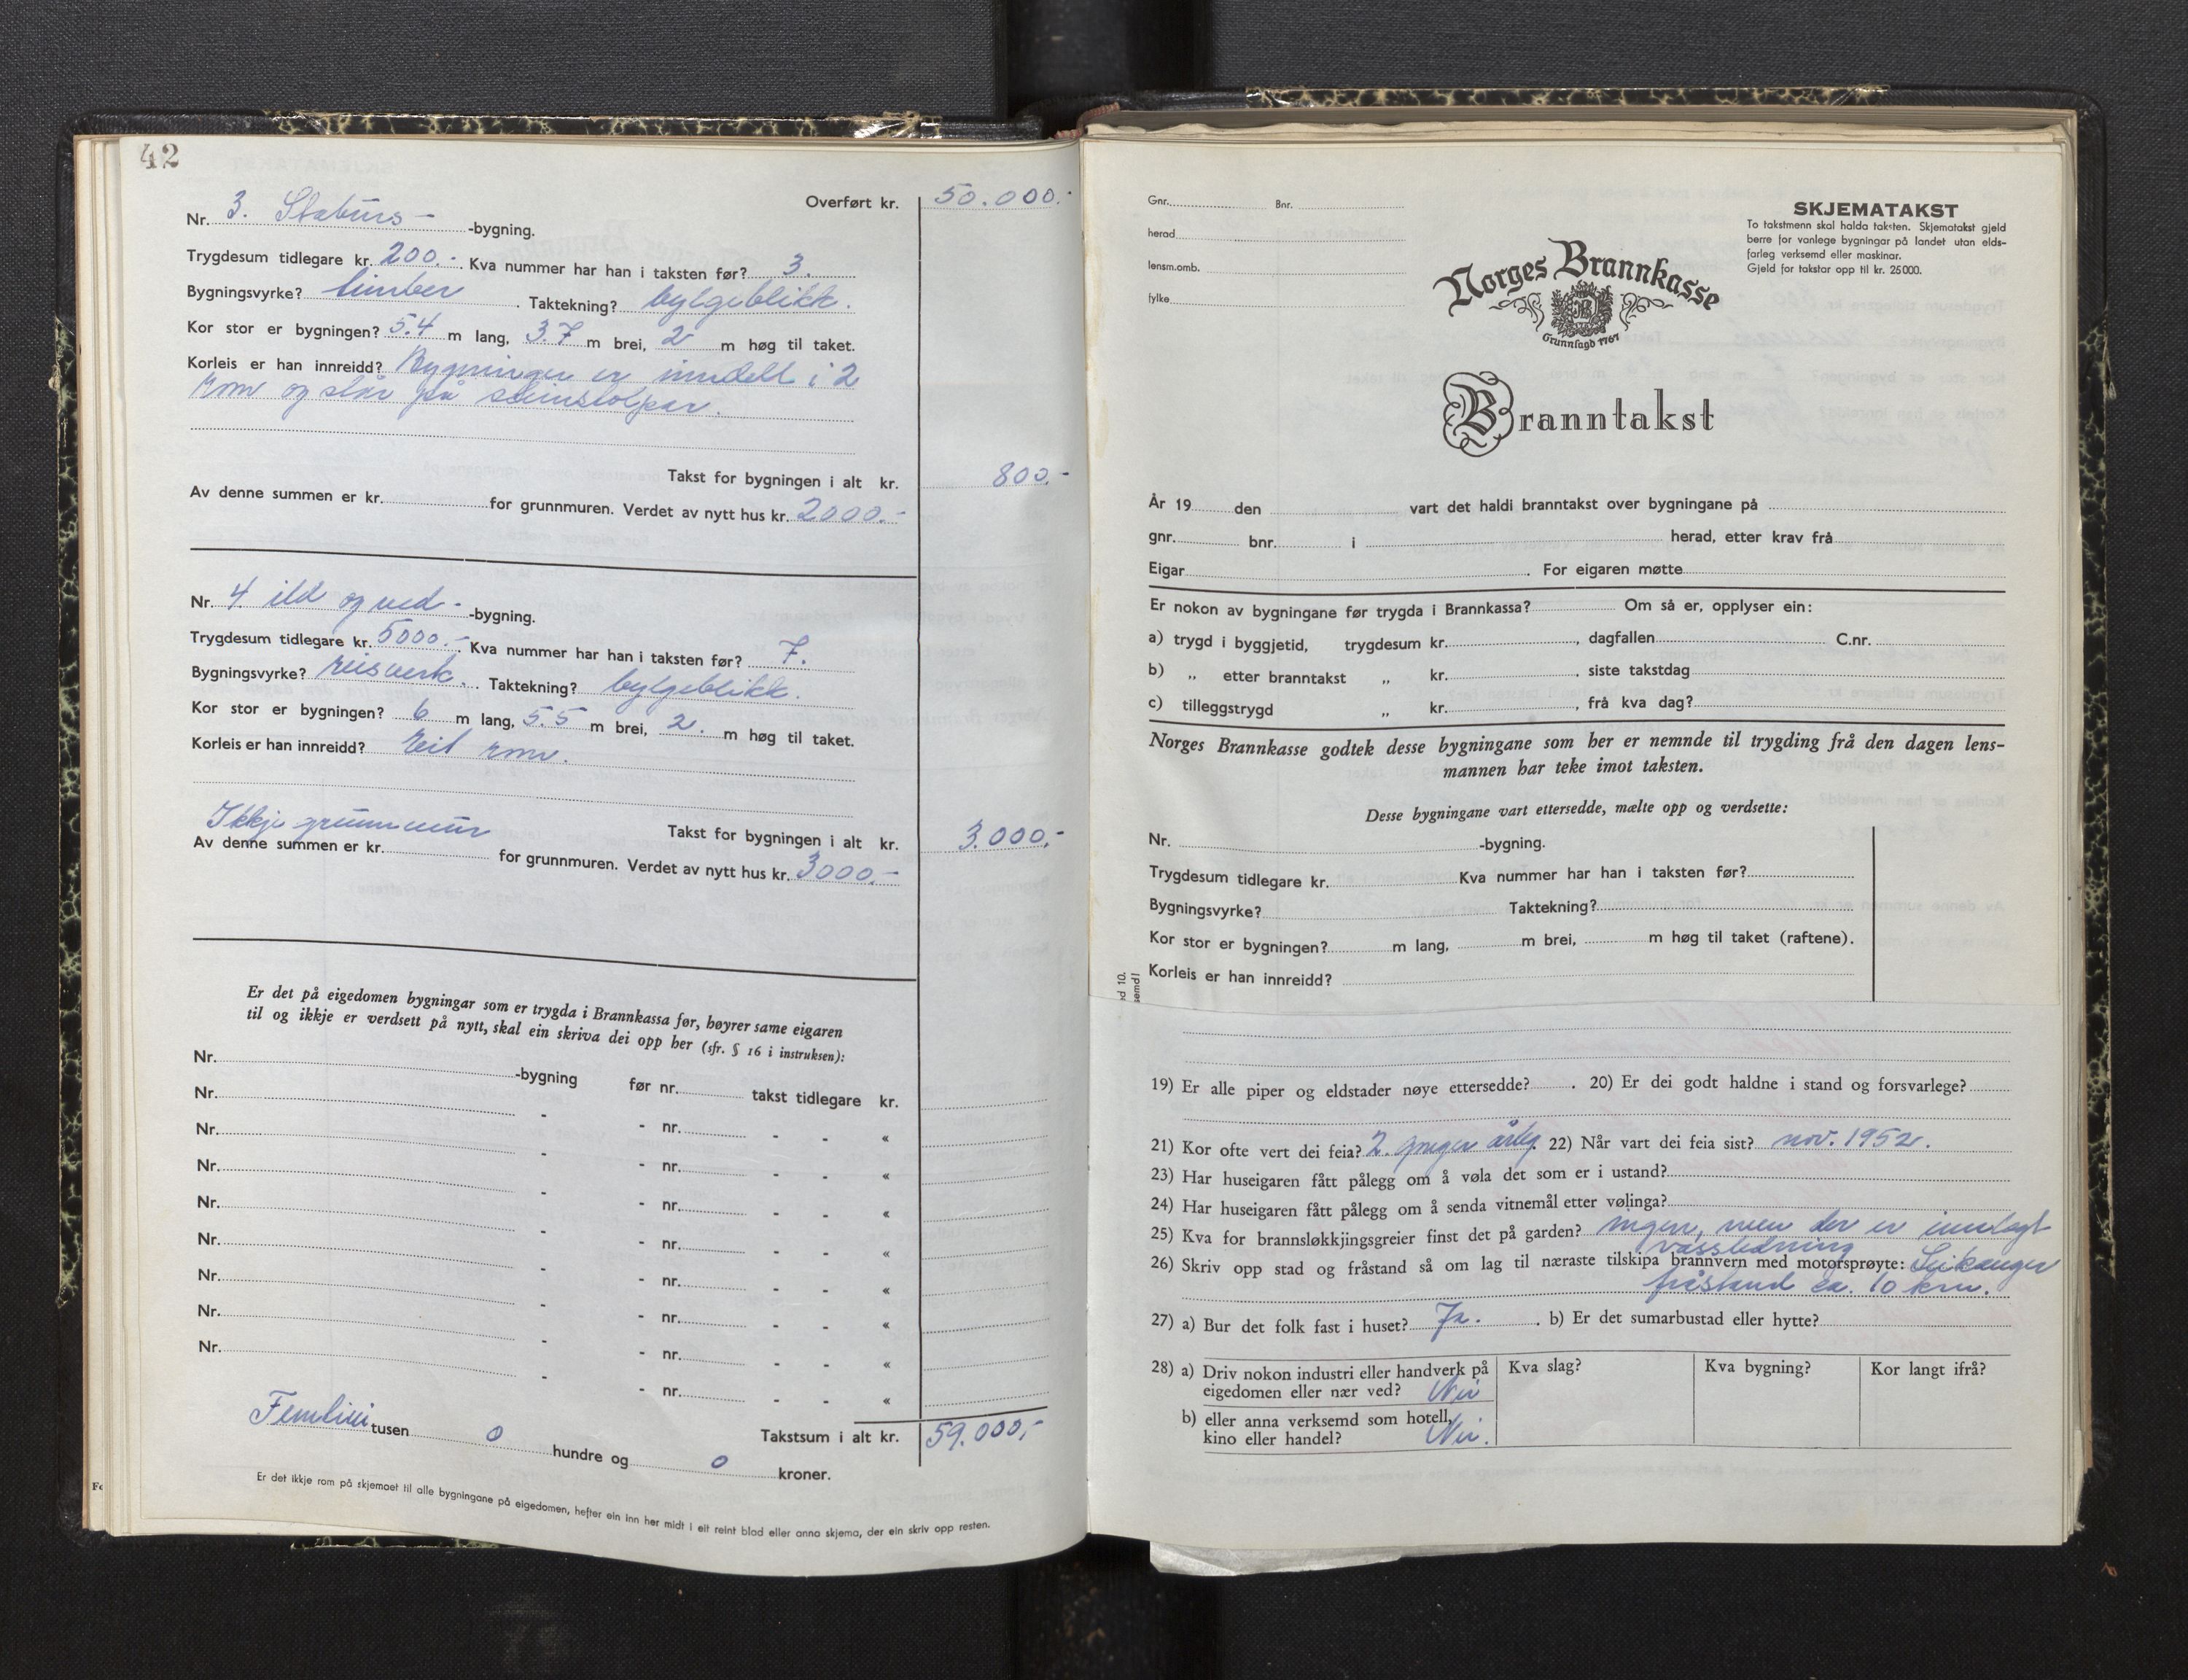 42
Overført kr. 50.000.-
Nr. 3. Staburs- -bygning.
Trygdesum tidlegare kr. 200.-. Kva nummer har han i taksten før? 3.
Bygningsvyrke? timber . Taktekning? bylgeblikk.
Kor stor er bygningen? 5.4 m lang, 3.7 m brei, 2 m høg til taket.
Korleis er han innreidd? Bygningen er inndelt i 2
rom og står på steinstolpar.
Takst for bygningen i alt kr. 800.-
Av denne summen er kr. for grunnmuren. Verdet av nytt hus kr. 2000.-
Nr. 4. eld og ved- -bygning.
Trygdesum tidlegare kr. 5000.-. Kva nummer har han i taksten før? 7.
Bygningsvyrke? reisverk. . Taktekning? bylgeblikk.
Kor stor er bygningen? 6 m lang, 5.5 m brei, 2. m høg til taket.
Korleis er han innreidd? eit rom.
Ikkje grunnmur
Takst for bygningen i alt kr. 3.000.-
Av denne summen er kr. for grunnmuren. Verdet av nytt hus kr. 3000.-
Er det på eigedomen bygningar som er trygda i Brannkassa før, høyrer same eigaren
til og ikkje er verdsett på nytt, skal ein skriva dei opp her (sfr. § 16 i instruksen):
Nr. -bygning før nr. takst tidlegare kr.
Nr. - - nr. - - «
Nr. - - nr. - - «
Nr. - - nr. - - «
Nr. - - nr. - - «
Nr. - - nr. - - «
Nr. - - nr. - - «
Nr. - - nr. - - «
Nr. - - nr. - - «
Takstsum i alt kr. 59.000,-
tusen 0 hundre og 0 kroner.
Er det ikkje rom på skjemaet til alle bygningane på eigedomen, hefter ein inn her midt i eit reint blad eller anna skjema, der ein skriv opp resten.
Gnr. Bnr.
herad
lensm.omb.
fylke
SKJEMATAKST
To takstmenn skal halda taksten. Skjematakst gjeld
berre for vanlege bygningar på landet utan elds-
farleg verksemd eller maskinar.
Gjeld for takstar opp til kr. 25000.
Norges Brannkasse
Grunnlagd 1767
Branntakst
År 19 den vart det haldi branntakst over bygningane på
gnr. bnr. i herad, etter krav frå
Eigar . For eigaren møtte
Er nokon av bygningane før trygda i Brannkassa? Om så er, opplyser ein:
a) trygd i byggjetid, trygdesum kr. , dagfallen C.nr.
b) „ etter branntakst „ kr. , siste takstdag
c) tilleggstrygd „ kr. , frå kva dag?
Norges Brannkasse godtek desse bygningane som her er nemnde til trygding frå den dagen lens-
mannen har teke imot taksten.
Desse bygningane vart ettersedde, mælte opp og verdsette:
Nr. -bygning.
Trygdesum tidlegare kr. Kva nummer har han i taksten før?
Bygningsvyrke? Taktekning?
Kor stor er bygningen? m lang, m brei, m høg til taket (raftene).
Korleis er han innreidd?
19) Er alle piper og eldstader nøye ettersedde? . 20) Er dei godt haldne i stand og forsvarlege?
21) Kor ofte vert dei feia? 2. gonger årleg. 22) Når vart dei feia sist? nov. 1952.
23) Har huseigaren fått pålegg om å vøla det som er i ustand?
24) Har huseigaren fått pålegg om å senda vitnemål etter vølinga?
25) Kva for brannsløkkjingsgreier finst det på garden? ingen, men der er innlagt
vassledning
26) Skriv opp stad og fråstand så om lag til næraste tilskipa brannvern med motorsprøyte: Leikanger
fråstand ca. 10 km.
27) a) Bur det folk fast i huset? Ja. . b) Er det sumarbustad eller hytte?
28) a) Driv nokon industri eller handverk på
eigedomen eller nær ved? Nei
Kva slag? Kva bygning? Kor langt ifrå?
b) eller anna verksemd som hotell,
kino eller handel? Nei.